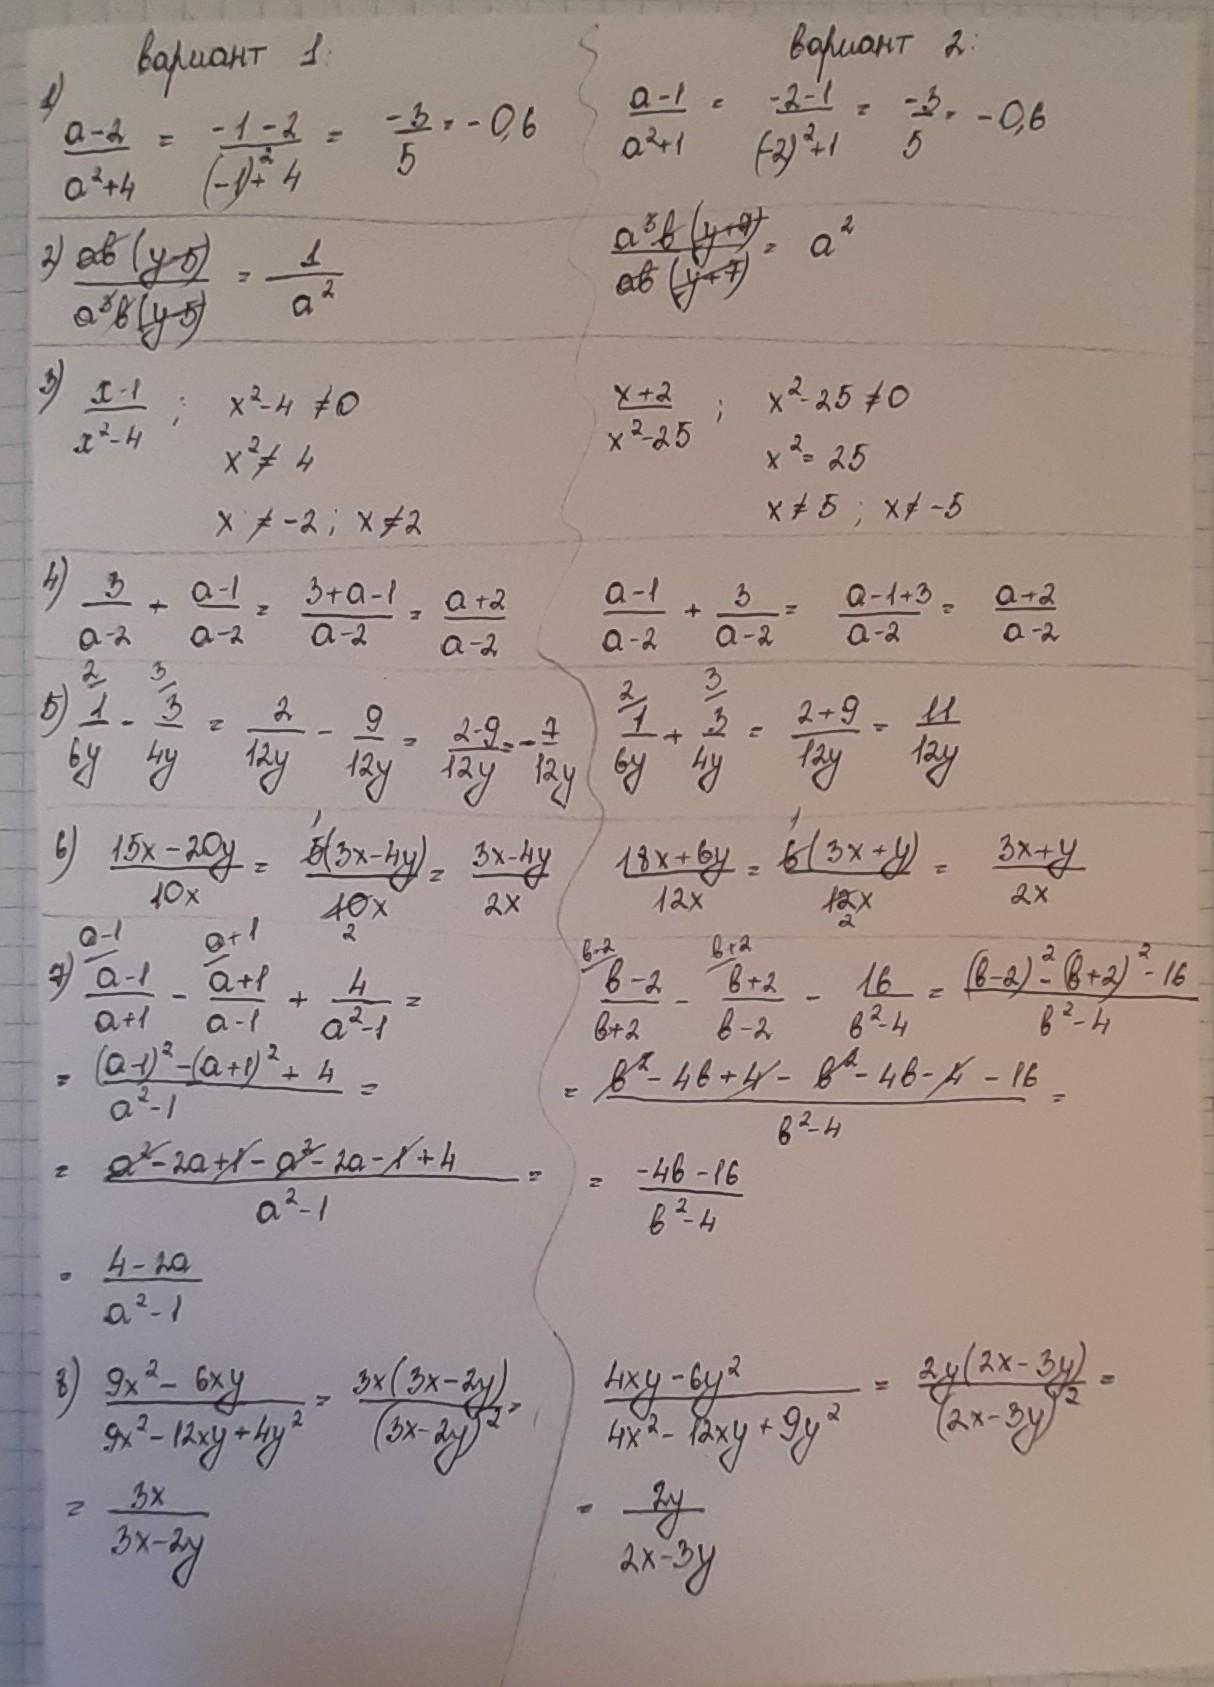 вариант 1:
1) (a-2)/(a²+4) = (-1-2)/((-1)²+4) = -3/5 = -0,6
2) ab(y-5)/(a³b(y-5)) = 1/a²
3) (x-1)/(x²-4) ; x²-4 ≠ 0
x² ≠ 4
x ≠ -2 ; x ≠ 2
4) 3/(a-2) + (a-1)/(a-2) = (3+a-1)/(a-2) = (a+2)/(a-2)
5) 2/ 1/(6y) - 3/ 3/(4y) = 2/(12y) - 9/(12y) = (2-9)/(12y) = -7/(12y)
6) (15x-20y)/(10x) = 5(3x-4y)/(10x) 1 2 = (3x-4y)/(2x)
7) a-1/ (a-1)/(a+1) - a+1/ (a+1)/(a-1) + 4/(a²-1) =
= ((a-1)²-(a+1)²+4)/(a²-1) =
= (a²-2a+1-a²-2a-1+4)/(a²-1) =
= (4-2a)/(a²-1)
8) (9x²-6xy)/(9x²-12xy+4y²) = 3x(3x-2y)/(3x-2y)² =
= 3x/(3x-2y)
вариант 2:
(a-1)/(a²+1) = (-2-1)/((-2)²+1) = -3/5 = -0,6
a³b(y+7)/(ab(y+7)) = a²
(x+2)/(x²-25) ; x²-25 ≠ 0
x² = 25
x ≠ 5 ; x ≠ -5
(a-1)/(a-2) + 3/(a-2) = (a-1+3)/(a-2) = (a+2)/(a-2)
2/ 1/(6y) + 3/ 3/(4y) = (2+9)/(12y) = 11/(12y)
(18x+6y)/(12x) = 6(3x+y)/(12x) 1 2 = (3x+y)/(2x)
в-2/ (в-2)/(в+2) - в+2/ (в+2)/(в-2) - 16/(в²-4) = ((в-2)²-(в+2)²-16)/(в²-4)
= (в²-4в+4-в²-4в-4-16)/(в²-4) =
= (-4в-16)/(в²-4)
(4xy-6y²)/(4x²-12xy+9y²) = 2y(2x-3y)/(2x-3y)² =
= 2y/(2x-3y)